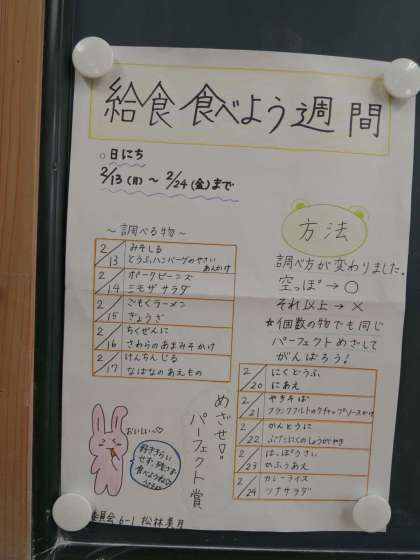 給食 食べよう週間
○日にち
2/13(月)～2/24(金)まで
～調べる物～
2/13 みそしる
とうふハンバーグのやさいあんかけ
2/14 ポークビーンズ
ミモザサラダ
2/15 ごもくラーメン
ぎょうざ
2/16 ちくぜんに
さわらのあまみそかけ
2/17 けんちんじる
なばなのあえもの
方法
調べ方が変わりました。
空っぽ→○
それ以上→×
★個数の物でも同じ
パーフェクトめざして
がんばろう!
2/20 にくどうふ
にあえ
2/21 やきそば
フランクフルトのケチャップソースかけ
2/22 かんとうに
ぶたにくのしょうがやき
2/23 はっぽうさい
かふうあえ
2/24 カレーライス
ツナサラダ
めざせ!!
パーフェクト賞
おいしい♡
好ききらい
せず、残さず
食べようね♡
委員会 6-1 松林